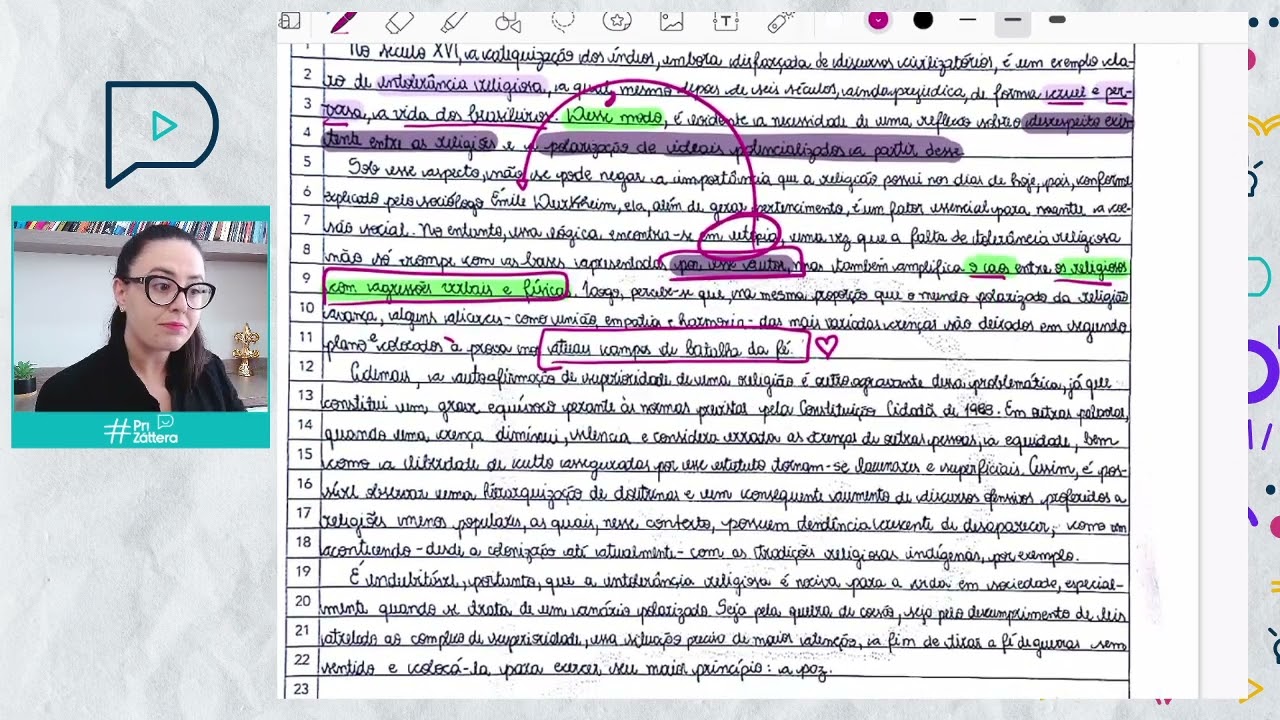 1 No século XVI, a catequização dos índios, embora disfarçada de discursos civilizatórios, é um exemplo cla-
2 ro de intolerância religiosa, a qual, mesmo depois de seis séculos, ainda prejudica, de forma cruel e per-
3 versa, a vida dos brasileiros. Desse modo, é evidente a necessidade de uma reflexão sobre o desrespeito exis-
4 tente entre as religiões e a polarização de ideais potencializados a partir desse.
5 Sob esse aspecto, não se pode negar a importância que a religião possui nos dias de hoje, pois, conforme
6 explicado pelo sociólogo Émile Durkheim, ela, além de gerar pertencimento, é um fator essencial para manter a coe-
7 são social. No entanto, essa lógica encontra-se em utopia, uma vez que a falta de tolerância religiosa
8 não só rompe com as bases apresentadas por esse autor, mas também amplifica o caos entre os religiosos
9 com agressões verbais e física. Logo, percebe-se que, na mesma proporção que o mundo polarizado da religião
10 avança, alguns alicerces - como união, empatia e harmonia - das mais variadas crenças são deixados em segundo
11 plano e colocados à prova nos atuais campos de batalha da fé.
12 Ademais, a autoafirmação de superioridade de uma religião é outro agravante dessa problemática, já que
13 constitui um grave equívoco perante às normas previstas pela Constituição Cidadã de 1988. Em outras palavras,
14 quando uma crença diminui, silencia e considera errada as crenças de outras pessoas, a equidade, bem
15 como a liberdade de culto asseguradas por esse estatuto tornam-se lacunares e superficiais. Assim, é pos-
16 sível observar uma hierarquização de doutrinas e um consequente aumento de discursos ofensivos proferidos a
17 religiões menos populares, as quais, nesse contexto, possuem tendência crescente de desaparecer, como vem
18 acontecendo - desde a colonização até atualmente - com as tradições religiosas indígenas, por exemplo.
19 É indubitável, portanto, que a intolerância religiosa é nociva para a vida em sociedade, especial-
20 mente quando se trata de um cenário polarizado. Seja pela quebra de coesão, seja pelo descumprimento de leis
21 atrelado ao complexo de superioridade, essa situação precisa de maior atenção, a fim de tirar a fé de guerras sem
22 sentido e colocá-la para exercer seu maior princípio: a paz.
23
#Pri
Záttera